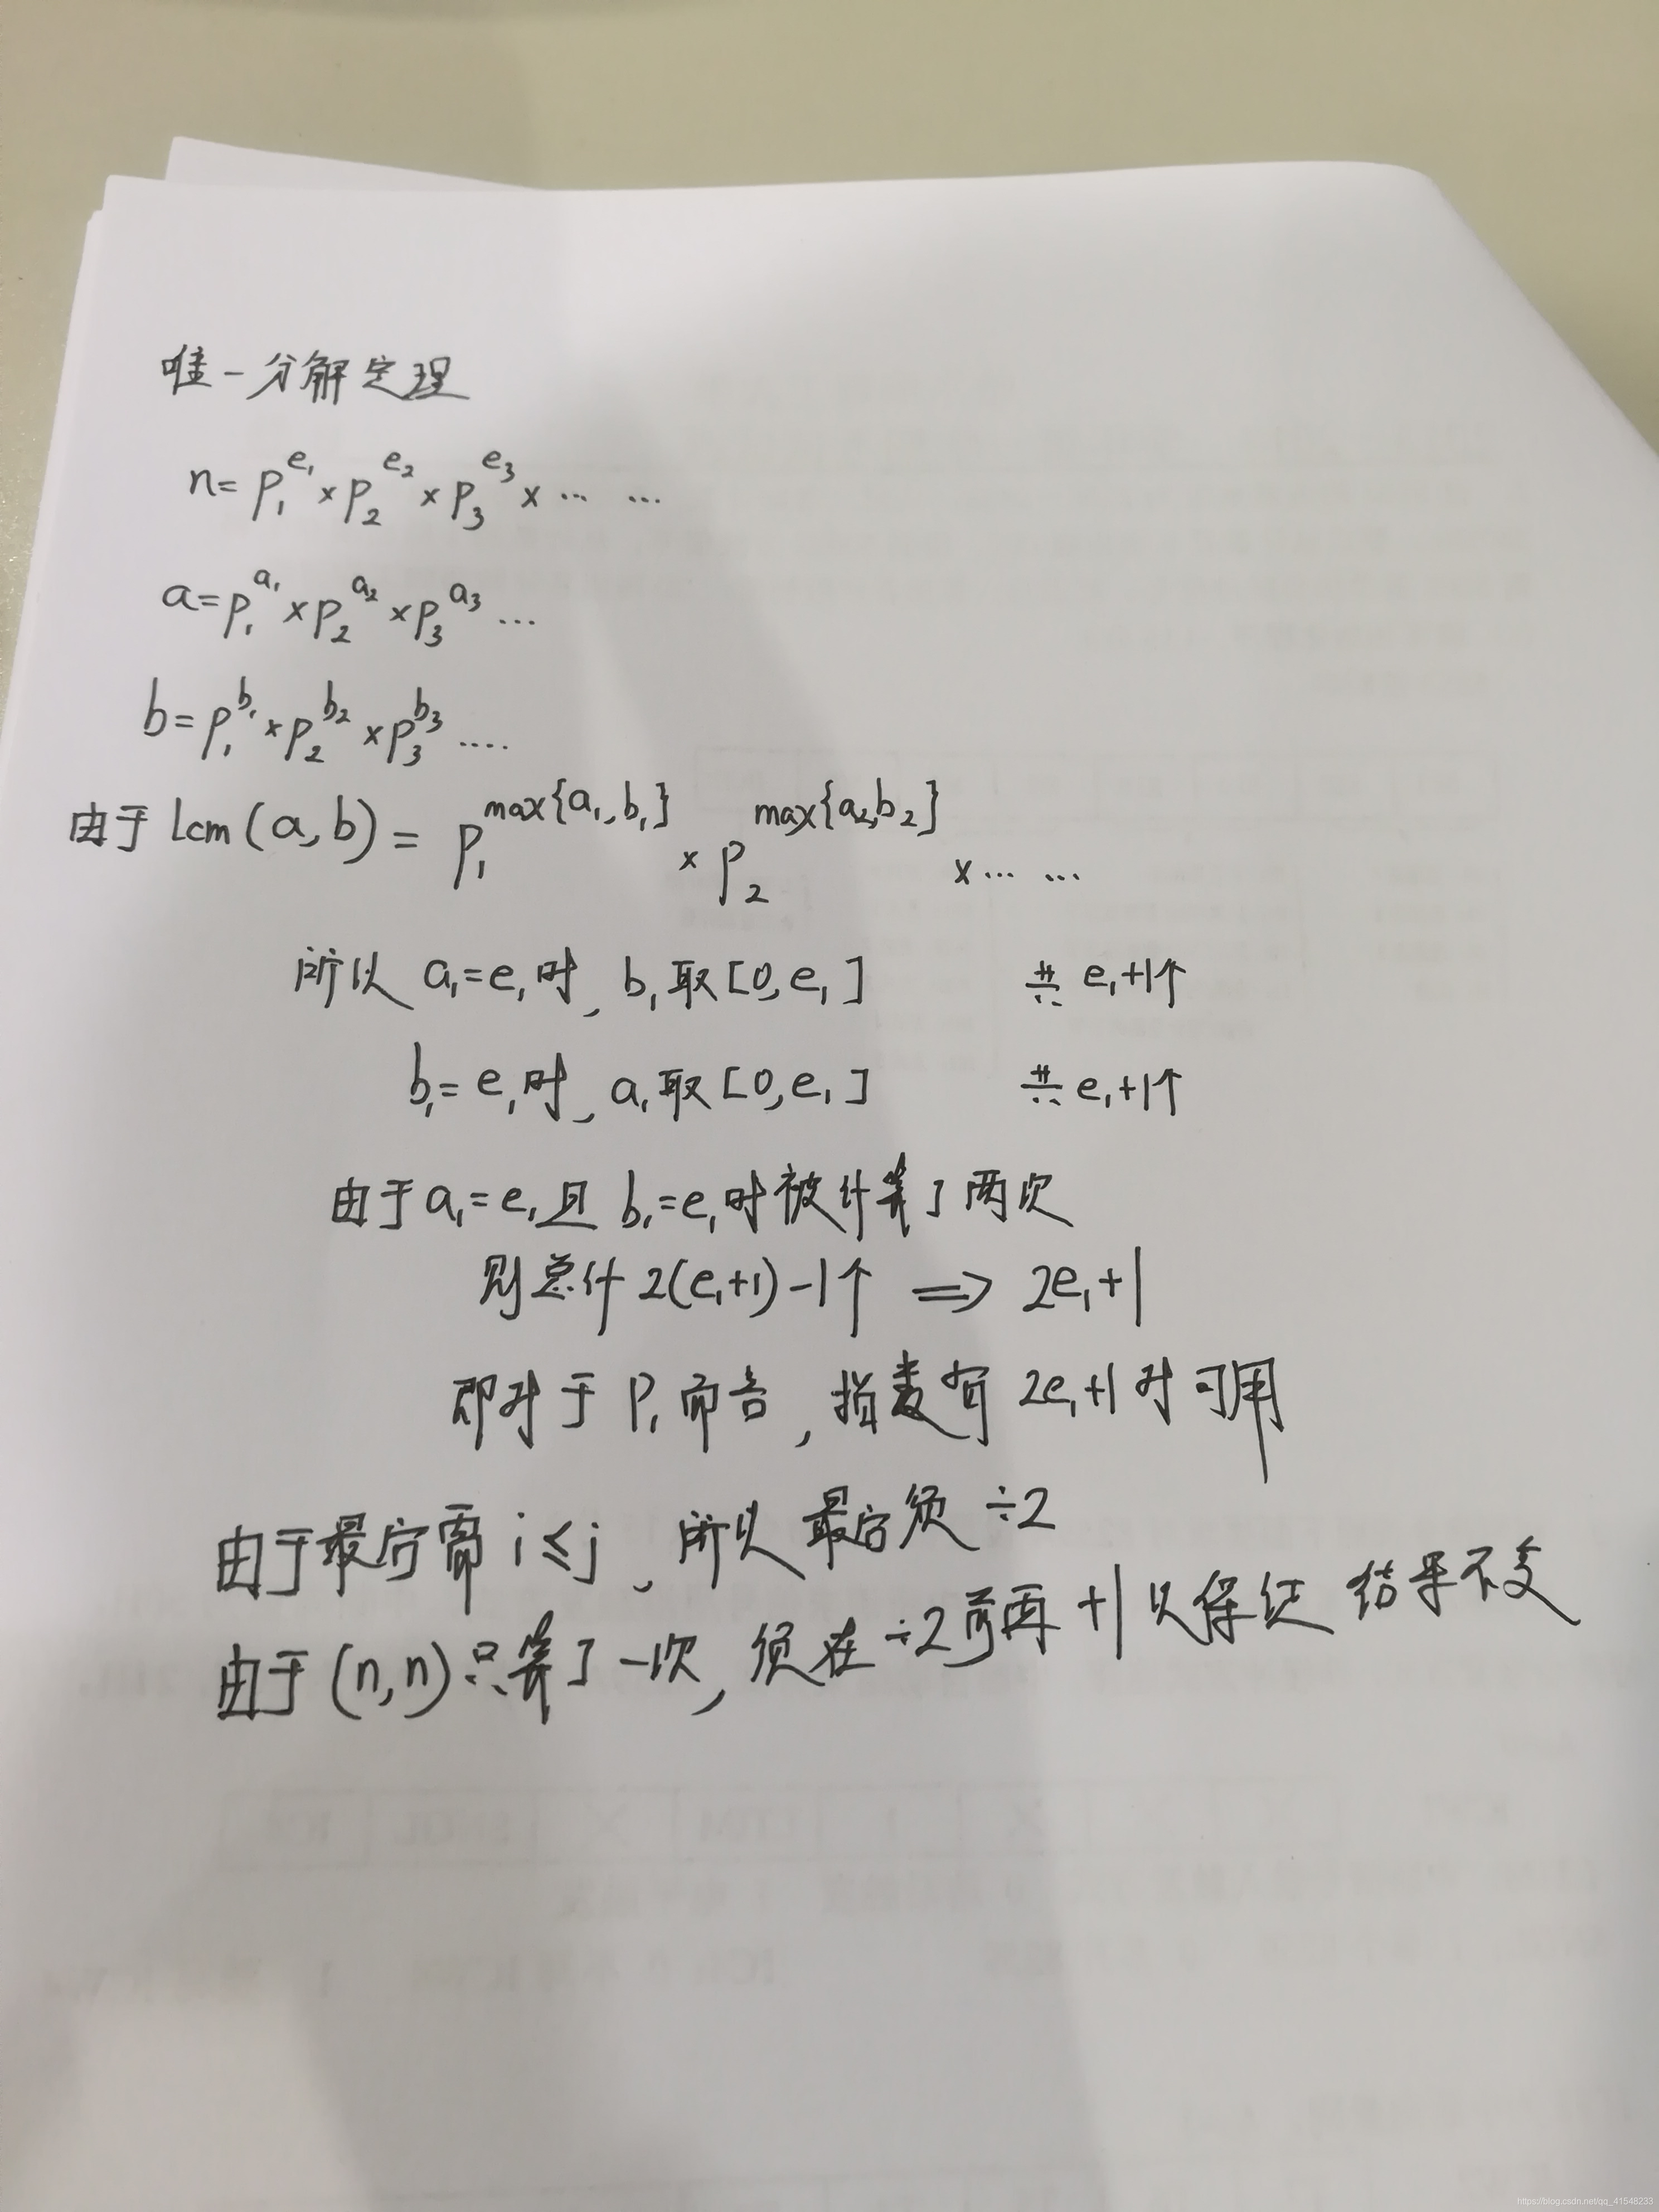 唯一分解定理
n=p₁^e₁×p₂^e₂×p₃^e₃×… …
a=p₁^a₁×p₂^a₂×p₃^a₃…
b=p₁^b₁×p₂^b₂×p₃^b₃….
由于 Lcm(a,b)=p₁^max{a₁,b₁}×p₂^max{a₂,b₂}×… …
所以 a₁=e₁时,b₁取[0,e₁] 共e₁+1个
b₁=e₁时,a₁取[0,e₁] 共e₁+1个
由于a₁=e₁且b₁=e₁时被计算了两次
则总计2(e₁+1)-1个 ⇒ 2e₁+1
即对于P₁而言,指数有2e₁+1对可用
由于最后需i≤j,所以最后须÷2
由于(n,n)只算了一次,须在÷2前再+1以保证结果不变
https://blog.csdn.net/qq_41548233